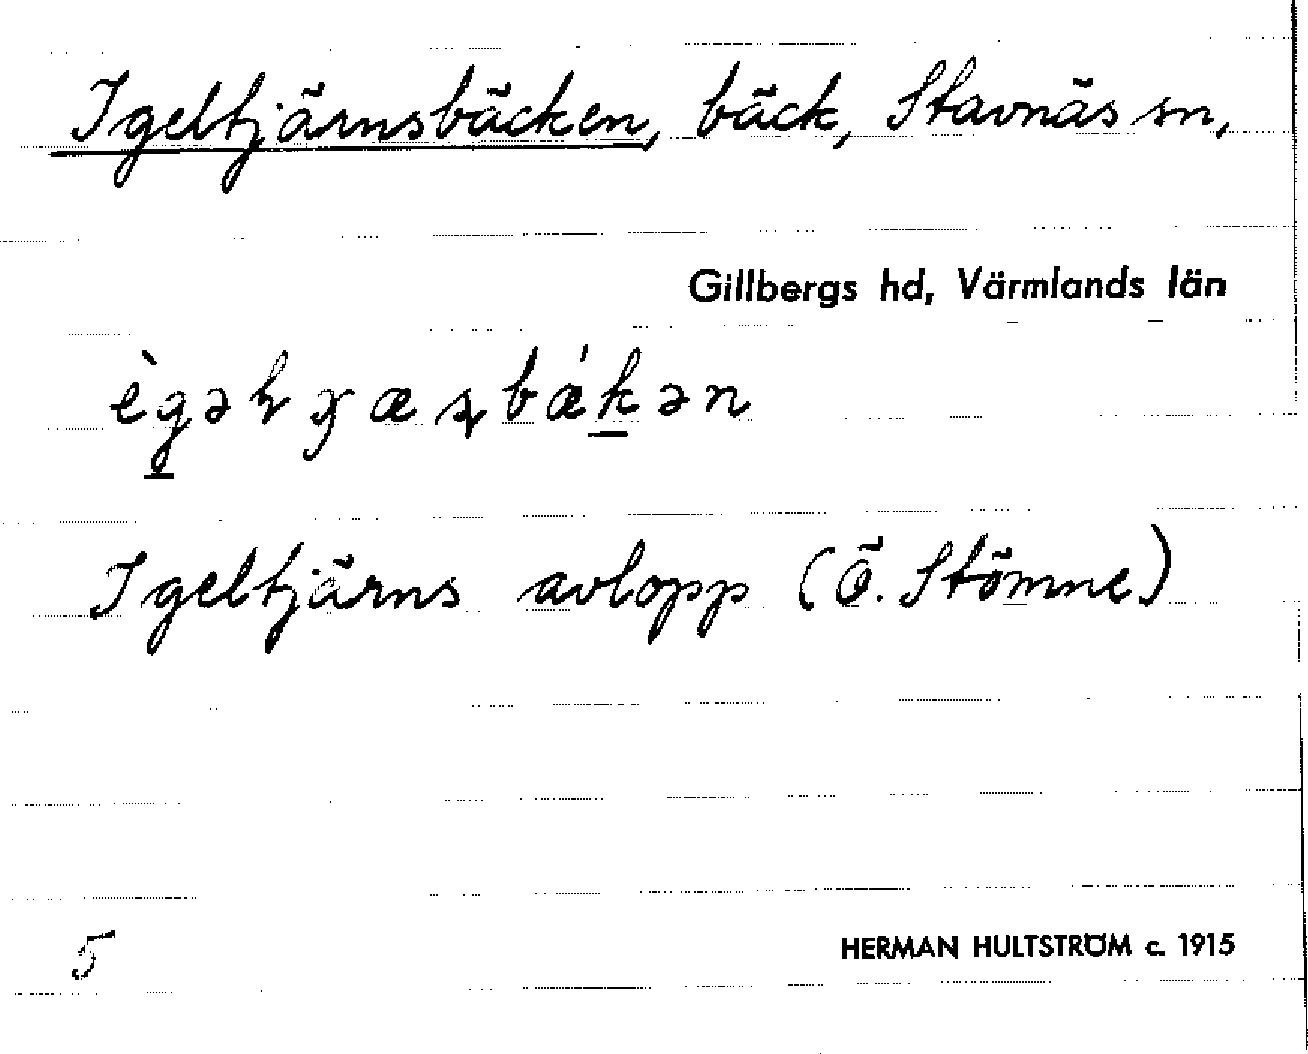 Igeltjärnsbäcken, bäck, Stavnäs sn,
Gillbergs hd, Värmlands län
Igeltjärns avlopp (Ö. Stömne)
5
HERMAN HULTSTRÖM c. 1915